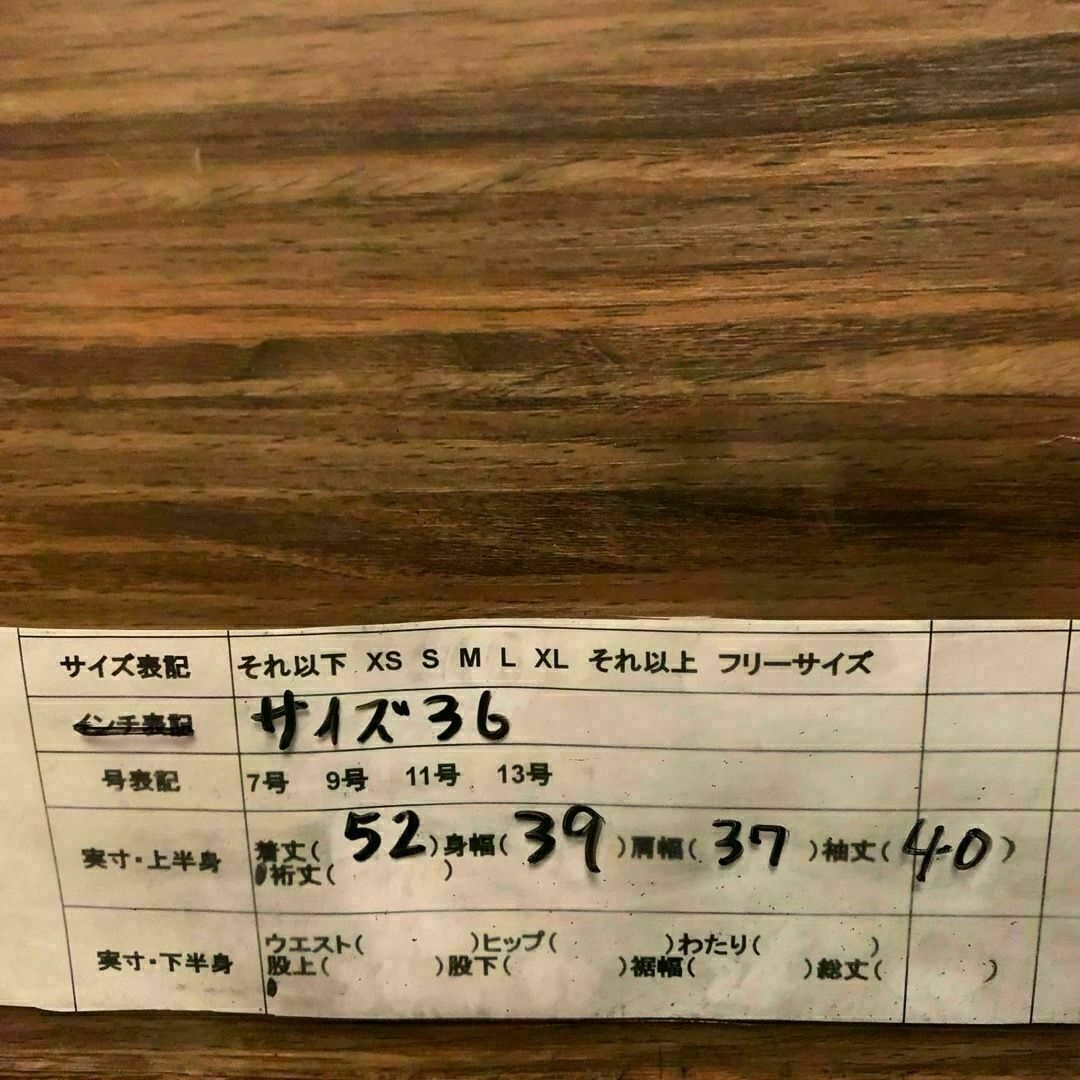 サイズ表記 それ以下 XS S M L XL それ以上 フリーサイズ
インチ表記 サイズ36
号表記 7号 9号 11号 13号
実寸・上半身 着丈( 52 )身幅( 39 )肩幅( 37 )袖丈( 40 )
裄丈( )
実寸・下半身 ウエスト( )ヒップ( )わたり( )
股上( )股下( )裾幅( )総丈( )